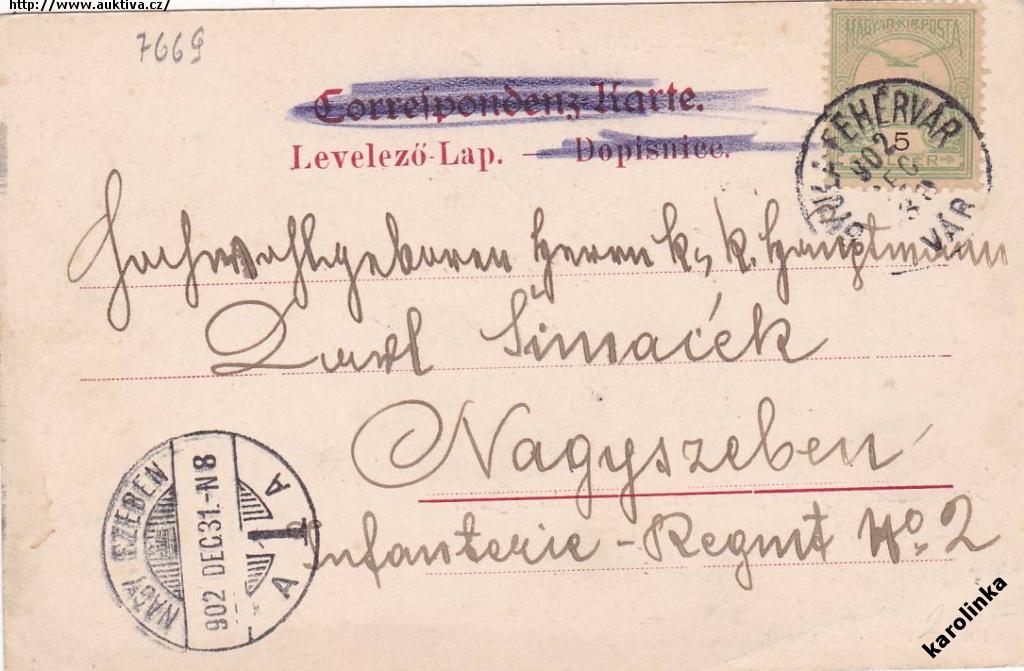 http://www.auktiva.cz/
7669
Correspondenz-Karte.
Levelező-Lap. — Dopisnice.
MAGYAR KIR. POSTA
5
FEHÉRVÁR
902 DEC
VÁR
Hochwohlgeboren Herrn k. k. Hauptmann
Karl Šimaček
Nagyszeben
Infanterie-Regmt No. 2
NAGY SZEBEN
902 DEC 31.-N8
A 1 A
karolinka